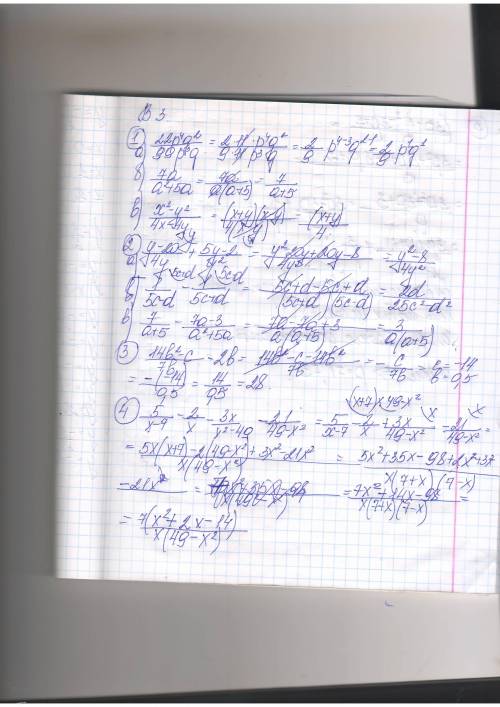 В 3
① а) 22p⁴q²/99p³q = 2·11·p⁴q²/9·11·p³q = 2/9 p⁴⁻³q²⁻¹ = 2/9 p¹q¹
б) 7a/a²+5a = 7a/a(a+5) = 7/a+5
в) x²-y²/4x-4y = (x+y)(x-y)/4(x-y) = (x+y)/4
② а) y-20/4y + 5y-2/y² = y²-20y+20y-8/4y² = y²-8/4y²
б) 1/5c-d - 1/5c+d = 5c+d-5c+d/(5c+d)(5c-d) = 2d/25c²-d²
в) 7/a+5 - 7a-3/a²+5a = 7a-7a+3/a(a+5) = 3/a(a+5)
③ 14b²-c/7b - 2b = 14b²-c-14b²/7b = -c/7b = c=-14 b=0,5
= -(-14)/0,5 = 14/0,5 = 28
④ 5/x-7 - 2/x - 3x/x²-49 - 21/49-x² = 5/x-7 - 2/x + 3x/49-x² - 21/49-x² =
= 5x(x+7)-2(49-x²)+3x²-21x²/x(49-x²) = 5x²+35x-98+2x²+3x²
-21x²/x(7+x)(7-x) = = 7x²+14x-98/x(7+x)(7-x) =
= 7(x²+2x-14)/x(49-x²)